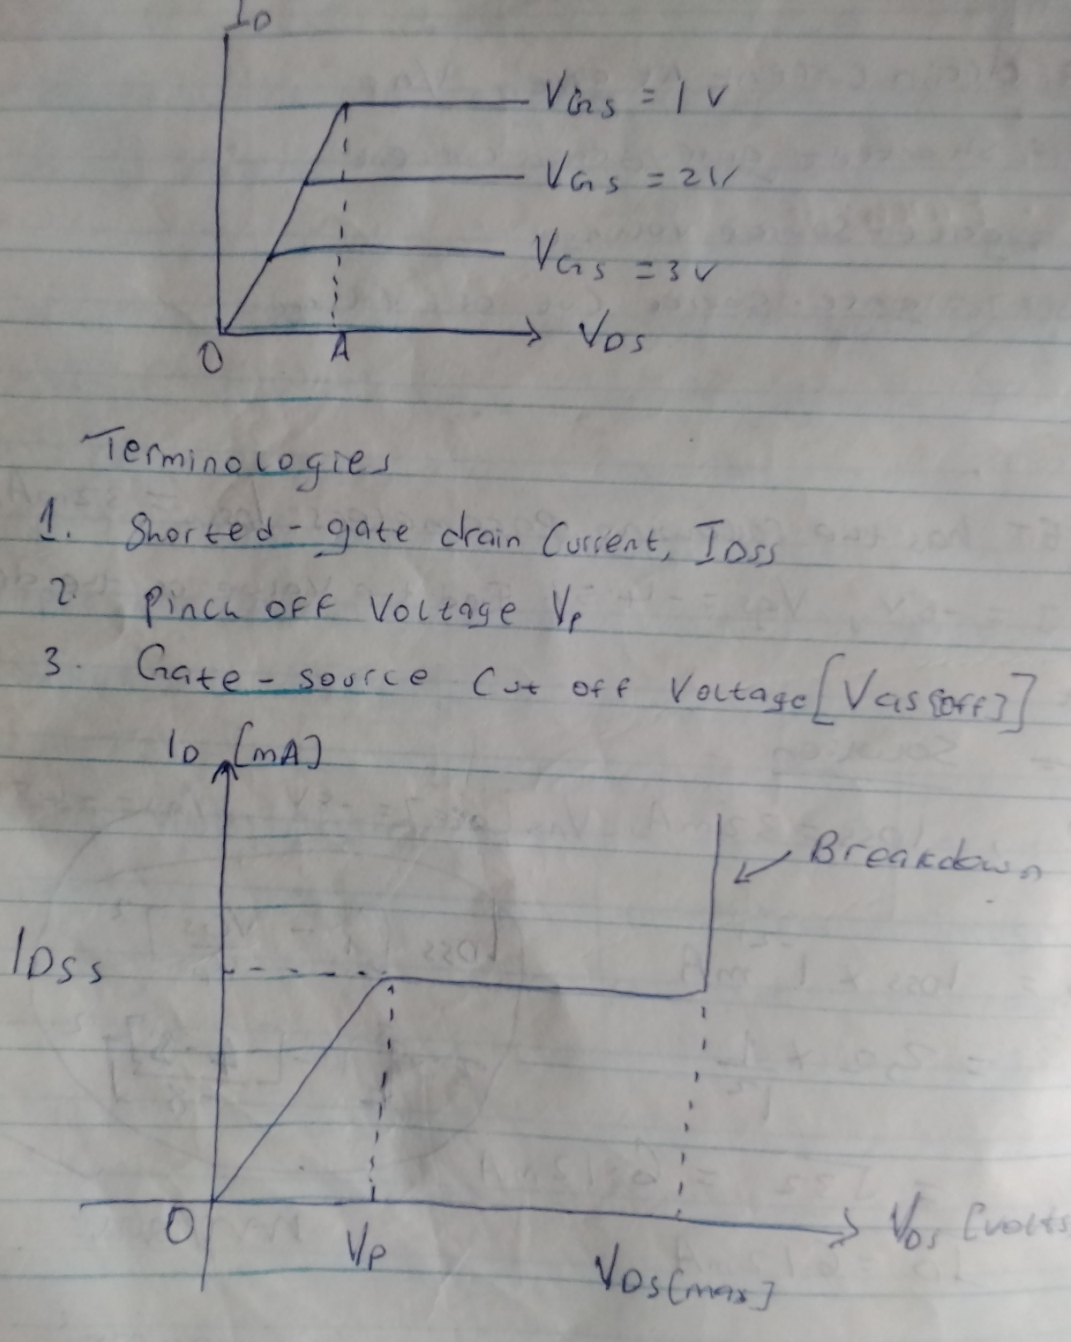 ID
VGS = 1 V
VGS = 2V
VGS = 3V
O A VDS
Terminologies
1. Shorted - gate drain Current, IDSS
2. Pinch OFF Voltage VP
3. Gate - source Cut off Voltage [VGS(off)]
ID [mA]
Breakdown
IDSS
O VP VDS [volts
VDS[max]